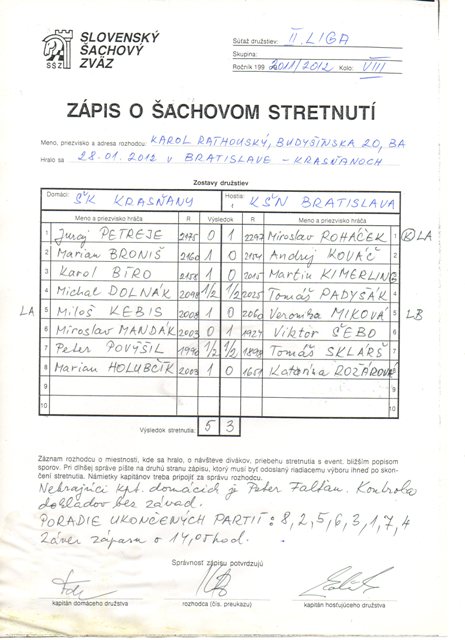 SLOVENSKÝ
ŠACHOVÝ
ZVÄZ
SŠZ
Súťaž družstiev: II. LIGA
Skupina:
Ročník 199 2011/2012 Kolo: VIII
ZÁPIS O ŠACHOVOM STRETNUTÍ
Meno, priezvisko a adresa rozhodcu: KAROL RATHOUSKÝ, BUDYŠÍNSKA 20, BA
Hralo sa 28.01.2012 v BRATISLAVE - KRASŇANOCH
Zostavy družstiev
Domáci: ŠK KRASŇANY Hostia: KŠN BRATISLAVA
Meno a priezvisko hráča R Výsledok R Meno a priezvisko hráča
1 Juraj PETREJE 2175 0 1 2297 Miroslav ROHÁČEK 1 K LA
2 Marian BRONIŠ 2160 1 0 Andrej KOVÁČ 2
3 Karol BÍRO 1 0 Martin KIMERLING 3
4 Michal DOLNÁK 2098 1/2 1/2 2025 Tomáš PADYŠÁK 4
LA 5 Miloš KEBIS 2008 1 0 2060 Veronika MIKOVÁ 5 LB
6 Miroslav MANDÁK 2003 0 1 1927 Viktor ŠEBO 6
7 Peter POVÝŠIL 1990 1/2 1/2 Tomáš SKLÁRŠ 7
8 Marian HOLUBČÍK 2003 1 0 1651 Katarína ROŽÁROVÁ 8
9 9
10 10
Výsledok stretnutia: 5 3
Záznam rozhodcu o miestnosti, kde sa hralo, o návšteve divákov, priebehu stretnutia s event. bližším popisom
sporov. Pri dlhšej správe píšte na druhú stranu zápisu, ktorý musí byť odoslaný riadiacemu výboru ihneď po skon-
čení stretnutia. Námietky kapitánov treba pripojiť za správu rozhodcu.
Nehrajúci kpt. domácich je Peter Faltan. Kontrola
dokladov bez závad.
PORADIE UKONČENÝCH PARTIÍ: 8, 2, 5, 6, 3, 1, 7, 4
Záver zápasu o 14,05 hod.
Správnosť zápisu potvrdzujú
kapitán domáceho družstva rozhodca (čís. preukazu) kapitán hosťujúceho družstva